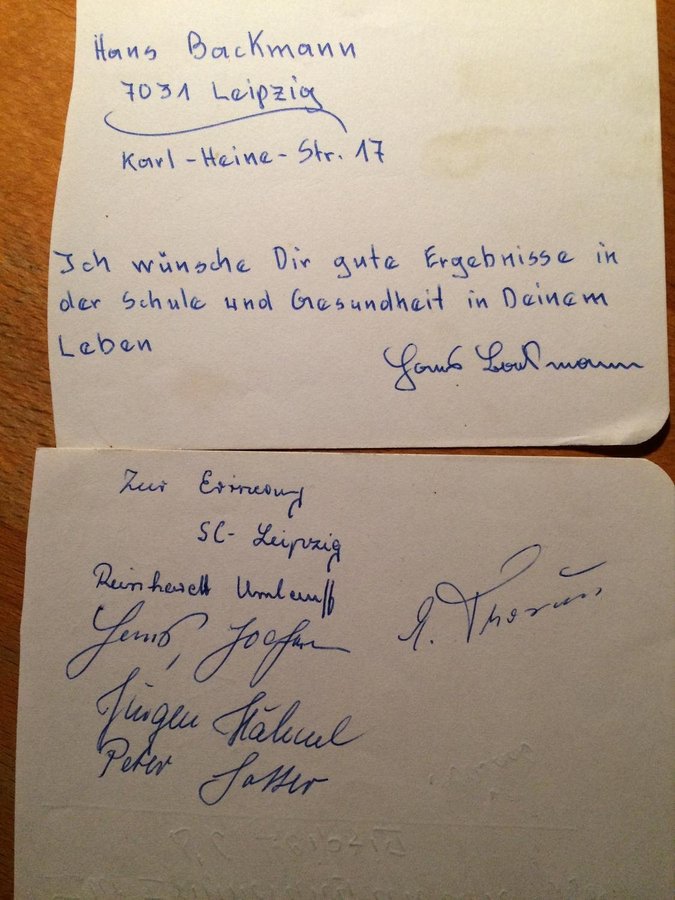 Hans Backmann
7031 Leipzig
Karl-Heine-Str. 17
Ich wünsche Dir gute Ergebnisse in
der Schule und Gesundheit in Deinem
Leben
Hans Backmann
Zur Erinnerung
SC-Leipzig
Jürgen Hähnel
Peter